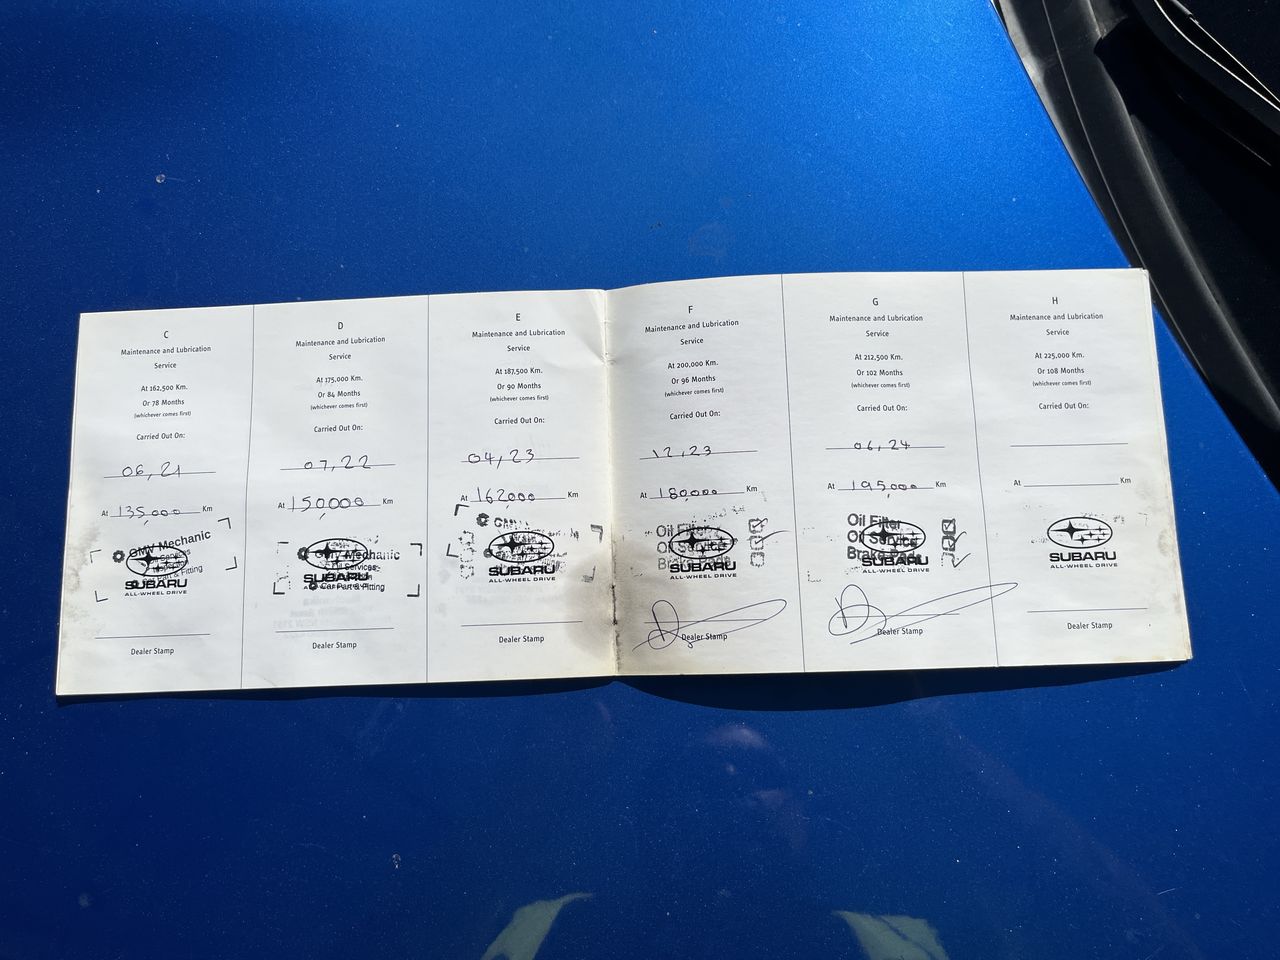 C
Maintenance and Lubrication
Service
At 162,500 Km.
Or 78 Months
(whichever comes first)
Carried Out On:
06,21
At 135,000 Km
GMV Mechanic
Services
Part & Fitting
SUBARU
ALL-WHEEL DRIVE
Dealer Stamp
D
Maintenance and Lubrication
Service
At 175,000 Km.
Or 84 Months
(whichever comes first)
Carried Out On:
07,22
At 150,000 Km
Mechanic
Services
SUBARU
Car Part & Fitting
Dealer Stamp
E
Maintenance and Lubrication
Service
At 187,500 Km.
Or 90 Months
(whichever comes first)
Carried Out On:
04,23
At 162,000 Km
SUBARU
ALL-WHEEL DRIVE
Dealer Stamp
F
Maintenance and Lubrication
Service
At 200,000 Km.
Or 96 Months
(whichever comes first)
Carried Out On:
12,23
At 180,000 Km
Oil Filter
Oil Service
SUBARU
ALL-WHEEL DRIVE
Dealer Stamp
G
Maintenance and Lubrication
Service
At 212,500 Km.
Or 102 Months
(whichever comes first)
Carried Out On:
06,24
At 195,000 Km
Oil Filter
Oil Service
Brake Pads
SUBARU
ALL-WHEEL DRIVE
Dealer Stamp
H
Maintenance and Lubrication
Service
At 225,000 Km.
Or 108 Months
(whichever comes first)
Carried Out On:
At Km
SUBARU
ALL-WHEEL DRIVE
Dealer Stamp